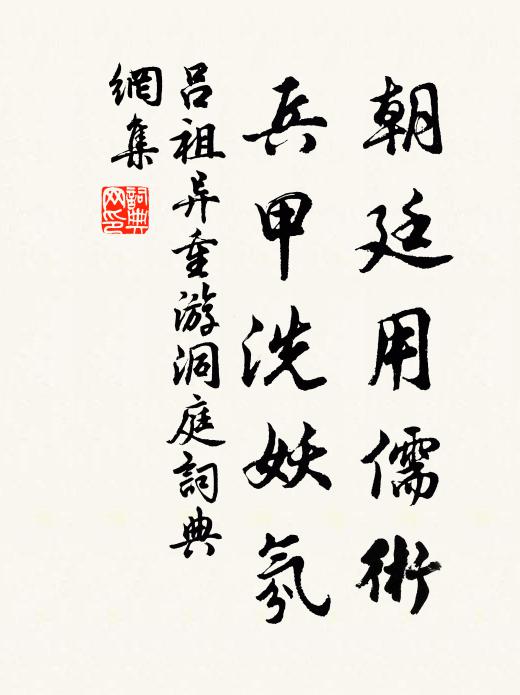 朝廷用儒術
兵甲洗妖氛
呂祖异重游洞庭詞典
網集
詞典
网印